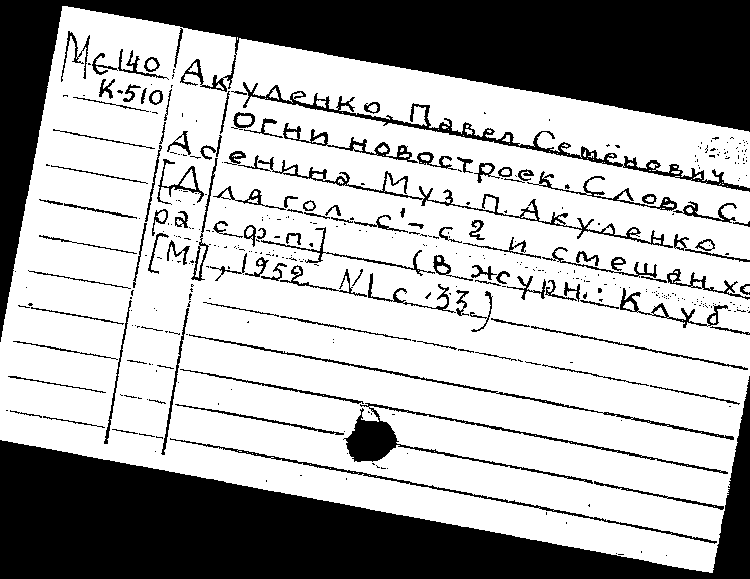 Мс 140 Акуленко, Павел Семёнович
К-510 Огни новостроек. Слова С.
Асенина. Муз. П. Акуленко.
[Для гол. с¹-с² и смешан. хо
ра с ф-п.] (В журн.: Клуб
[М], 1952 №1 с. 33)